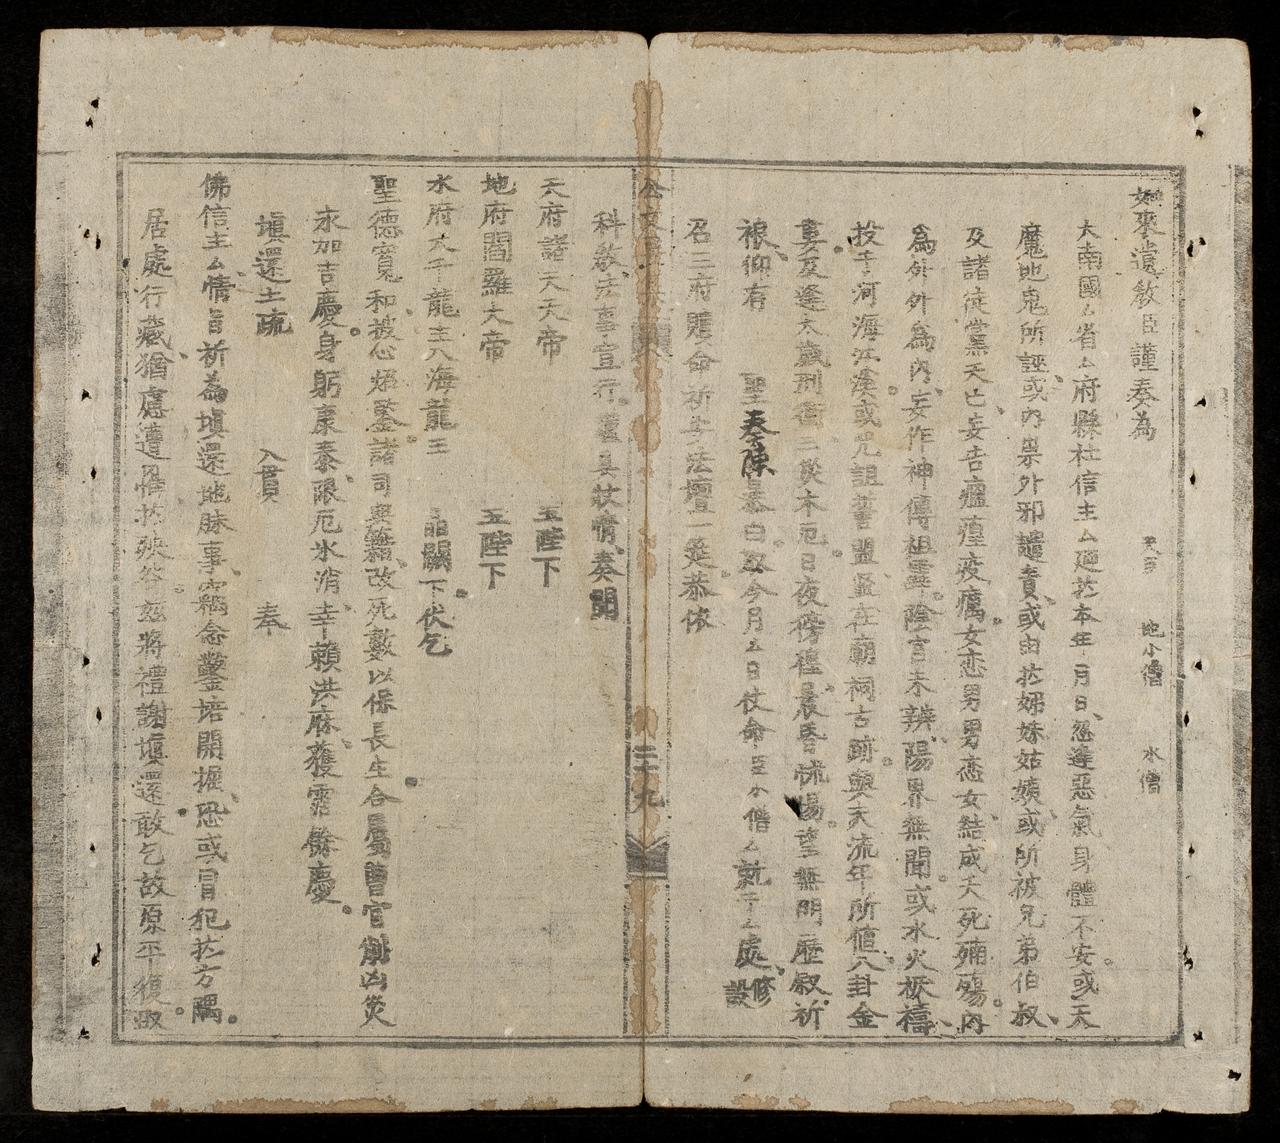 如來遺教臣謹奏為 小僧 水僧
大南國厶省厶府縣社信主厶廼於本年月日忽逢惡氣身體不安或天
魔地鬼所誣或內祟外邪譴責或由於姊妹姑姨或所被兄弟伯叔
及諸徒黨夭亡妄告瘟瘟疫癘女恋男男恋女結成夭死殤內
為外外為內妄作神傳祖陰宮未辨陽界無聞或水火禍
投于河海江溪或咒詛誓盟或在廟祠古跡與天流年所值八卦金
婁及逢太歲刑衝三災木厄日夜徬徨晨昏慌惕望無門歷叙祈
禳仰有 聖奏陳 白取今月厶日仗命臣小僧厶就于厶處修設
召三府贖命祈安法壇一筵恭依
科教法事宣行具狀情奏聞
天府諸天天帝 玉陛下
地府閻羅大帝 玉陛下
水府大千龍主八海龍王 晶闕下伏乞
聖德寬和被心炤鑒諸司與籍改死數以保長生合屬曹官削凶災
永加吉慶身躬康泰限厄氷消幸賴洪庥獲霑餘慶
填還土疏 入貫 奉
佛信主厶情旨祈為填還地脉事竊念鑿培開掘恐或冒犯於方隅
居處行藏猶慮遭愆於殃咎玆將禮謝填還敢乞故原平復取
公文
三十九